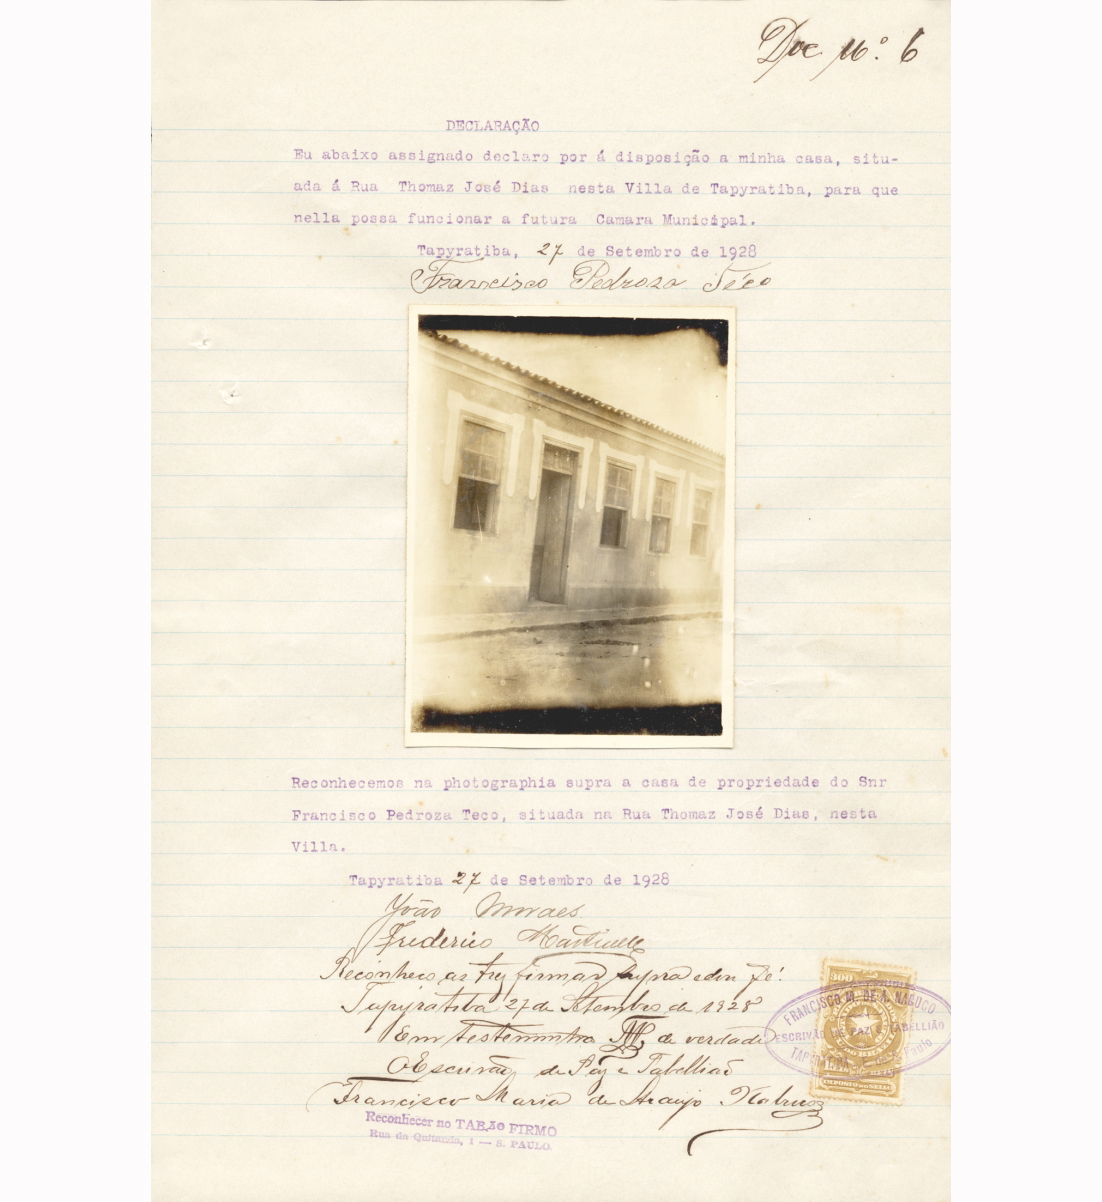 Doc Nº. 6
DECLARAÇÃO
Eu abaixo assignado declaro por á disposição a minha casa, situ-
ada á Rua Thomaz José Dias nesta Villa de Tapyratiba, para que
nella possa funcionar a futura Camara Municipal.
Tapyratiba, 27 de Setembro de 1928
Francisco Pedroza Téco
Reconhecemos na photographia supra a casa de propriedade do Snr
Francisco Pedroza Teco, situada na Rua Thomaz José Dias, nesta
Villa.
Tapyratiba 27 de Setembro de 1928
João Moraes
Frederico Martinelli
Reconheço as trez firmas supra e dou fé.
Tapyratiba 27 de Setembro de 1928
Em testemunho de verdade
O Escrivão de Paz e Tabellião
Francisco Maria de Araujo Nabuco
300
FRANCISCO M. DE A. NABUCO
ESCRIVÃO DE PAZ E TABELLIÃO
IMPOSTO DO SELLO
Reconhecer no TABÃO FIRMO
Rua da Quitanda, 1 — S. PAULO.